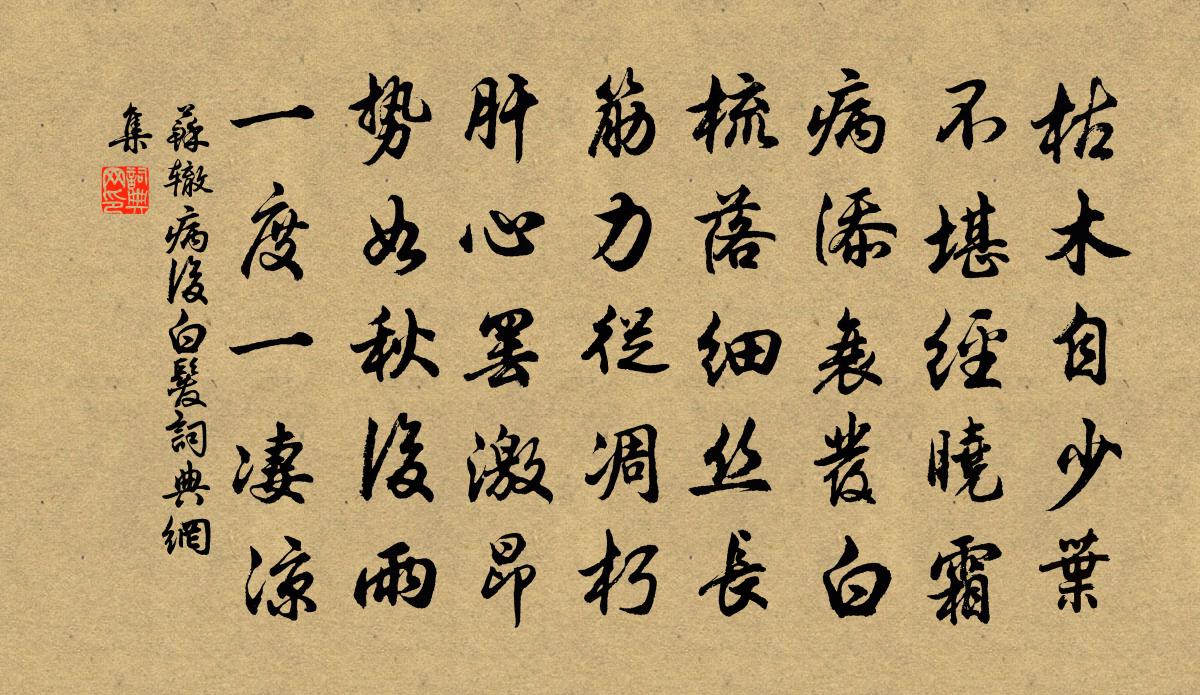 枯木自少葉
不堪經曉霜
病添衰發白
梳落細丝長
筋力從凋朽
肝心罢激昂
势如秋後雨
一度一凄凉
蘇辙病後白髮詞典網
集
詞典
网印